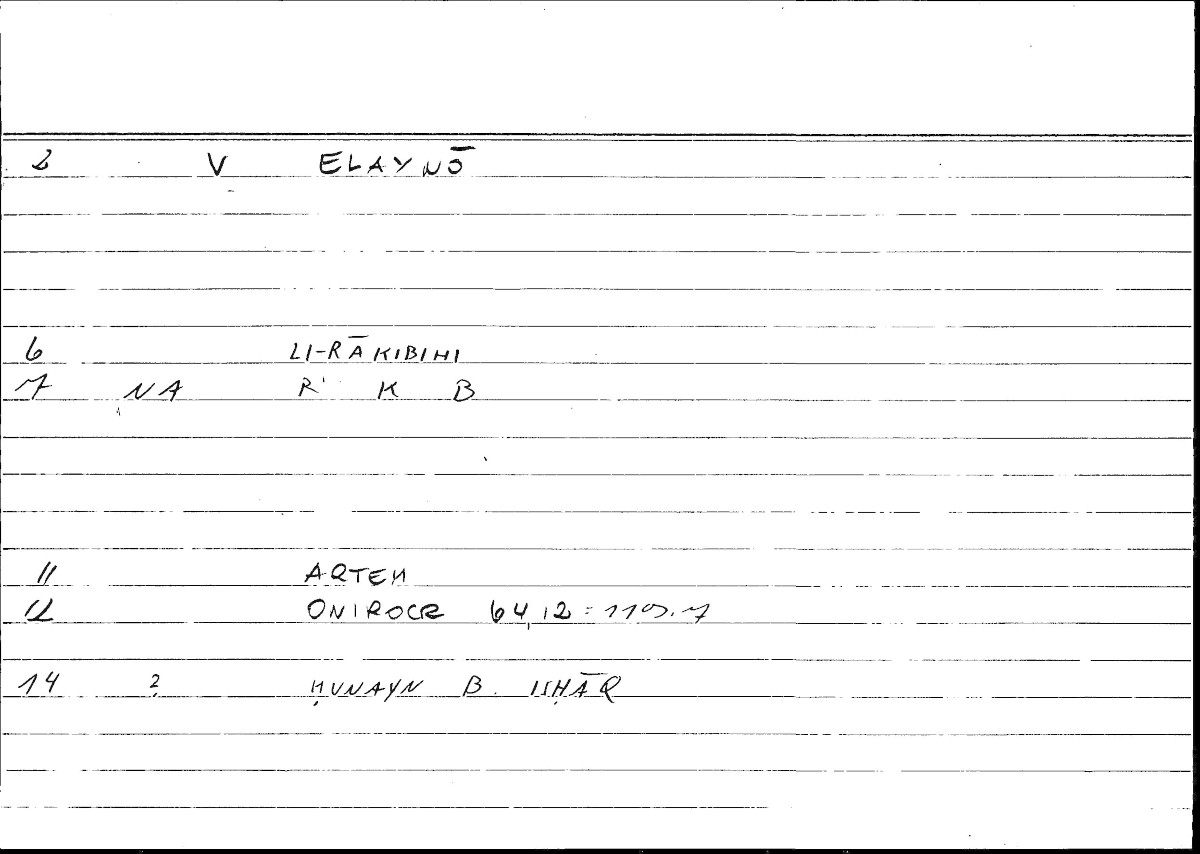 2 V ELAYNŌ
6 LI-RĀKIBIHI
7 NA R' K B
11 ARTEM
12 ONIROCR 64,12 = 119.7
14 ? ḤUNAYN B. ISḤĀQ